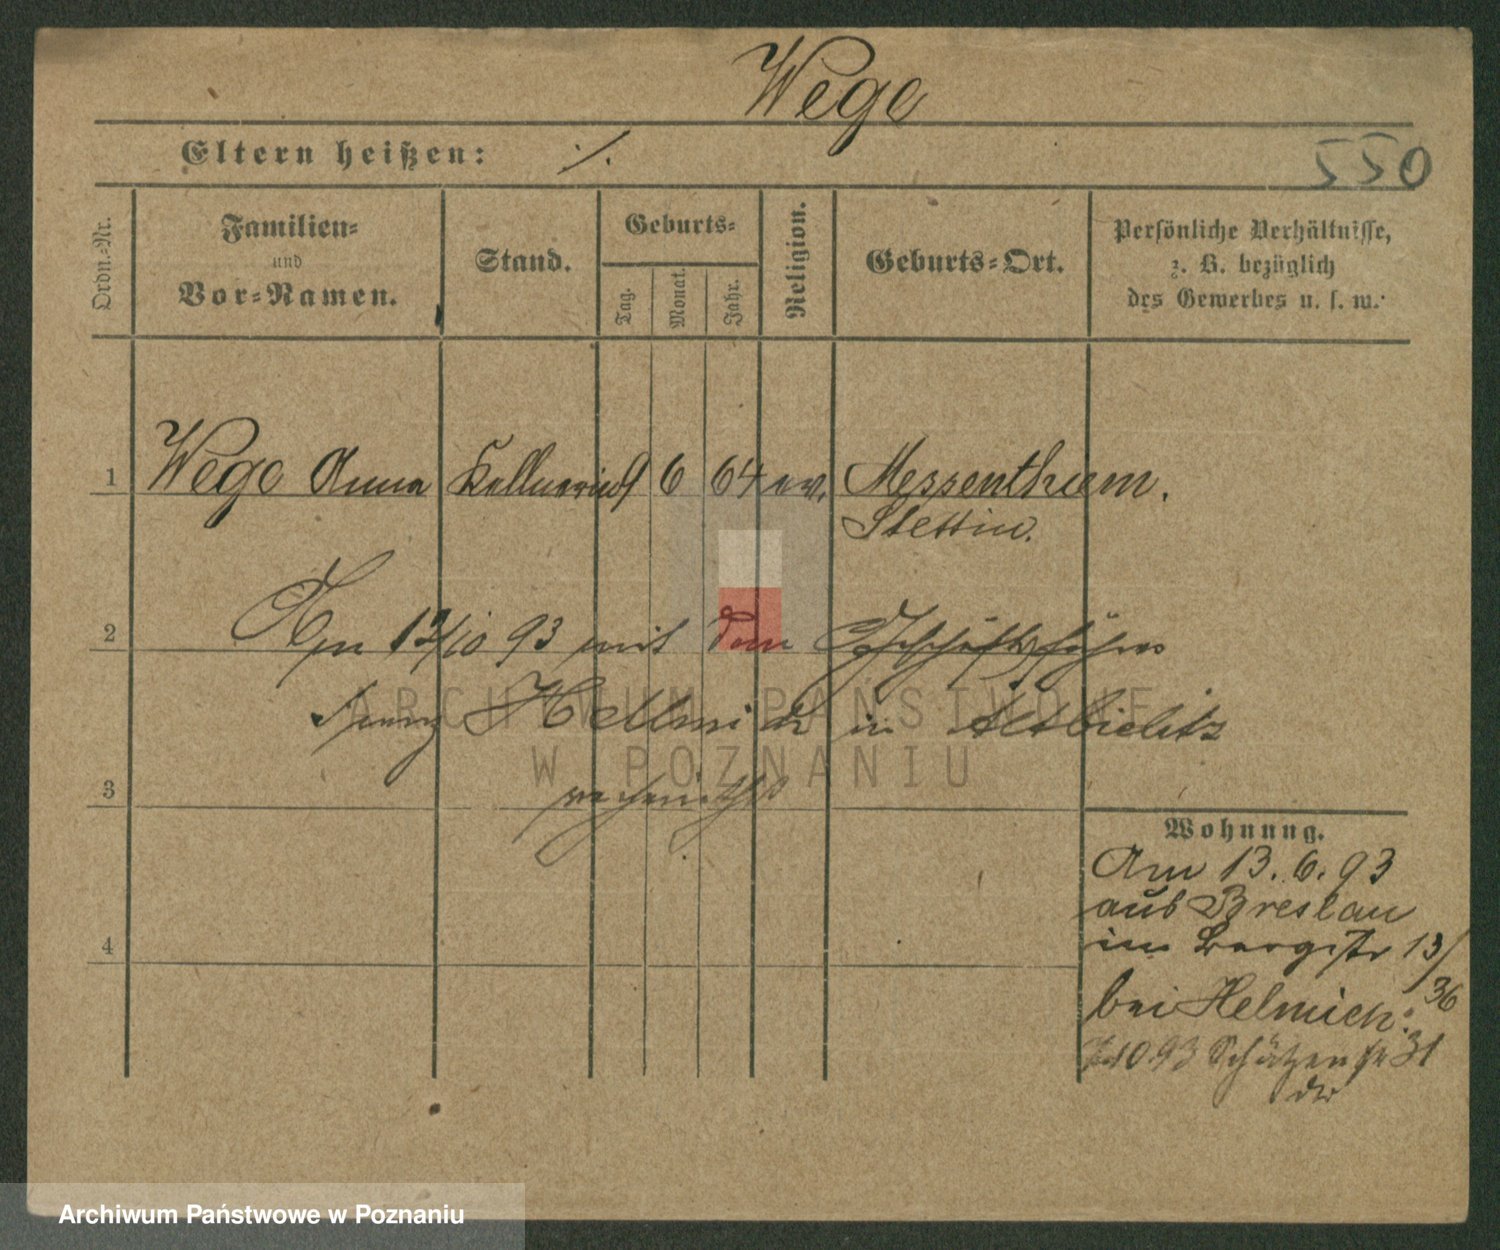 Wege
Eltern heißen: ./.
550
Ordn.-Nr.
Familien-
und
Vor-Namen.
Stand.
Geburts-
Tag.
Monat.
Jahr.
Religion.
Geburts-Ort.
Persönliche Verhältnisse,
z. B. bezüglich
des Gewerbes u. s. w.
1 Wege Anna Kellnerin 9 6 64 ev. Messenthien.
Stettin.
2 Am 12/10 93 mit dem Geschäftsführer
Franz Hellmich in Altbielitz
3 verheirathet
4
Wohnung.
Am 13.6.93
aus Breslau
in Bergstr 13/
36
bei Helmich.
10 93 Schützenstr 31
ARCHIWUM PAŃSTWOWE
W POZNANIU
Archiwum Państwowe w Poznaniu